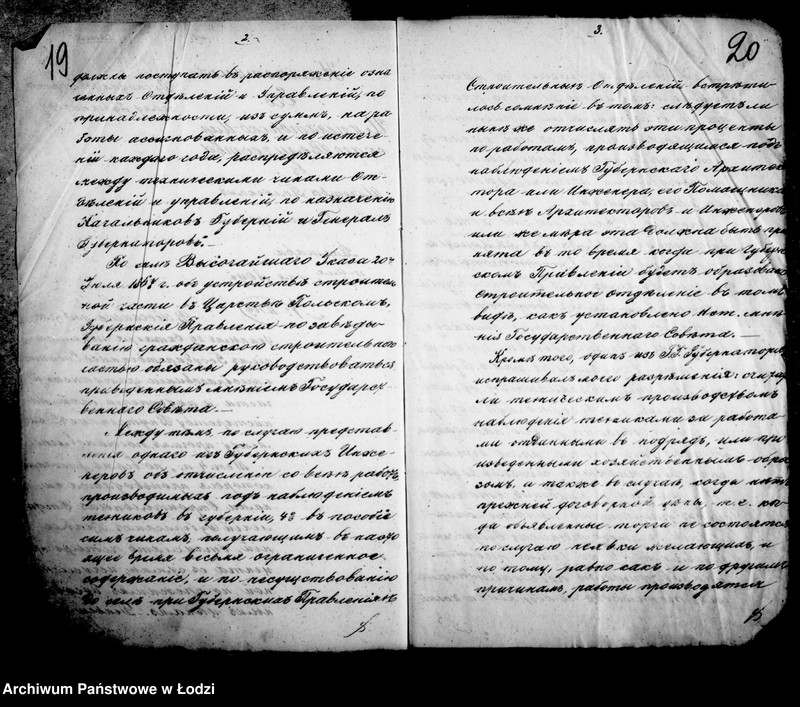 19
2.
должны поступать въ распоряженіе озна
ченныхъ Отдѣленій и Управленій, по
принадлежности, изъ суммъ, на ра
боты ассигнованныхъ, и по истече
ніи каждаго года, распредѣляются
между техническими чинами От-
дѣленій и управленій, по назначенію
Начальниковъ Губерній и Генералъ
Губернаторовъ.—
По силѣ Высочайшаго Указа 20го
Іюля 1867 г. объ устройствѣ строитель
ной части въ Царствѣ Польскомъ,
Губернскія Правленія по завѣды-
ванію гражданскою строительною
частью обязаны руководствоваться
приведеннымъ мнѣніемъ Государст
веннаго Совѣта.—
Между тѣмъ, по случаю представ-
ленія однаго изъ Губернскихъ Инже-
неровъ объ отчисленіи со всѣхъ работъ
производимыхъ подъ наблюденіемъ
техниковъ въ губерніи, 4% въ пособіе
симъ чинамъ, получающимъ въ насто
ящее время весьма ограниченное
содержаніе, и по несуществованію
до селѣ при Губернскихъ Правленіяхъ
20
3.
Строительныхъ Отдѣленій встрѣти-
лось сомнѣніе въ томъ: слѣдуетъ ли
нынѣ же отчислять эти проценты
по работамъ, производящимся подъ
наблюденіемъ Губернскаго Архитек
тора или Инженера, его Помощника
и всѣхъ Архитекторовъ и Инженеровъ
или же мѣра эта должна быть при
нята въ то время когда при Губерн
скомъ Правленіи будетъ образовано
строительное отдѣленіе въ томъ
видѣ, какъ установлено мнѣ
нія Государственнаго Совѣта.—
Кромѣ того, одинъ изъ Г.Г. Губернаторовъ
испрашивалъ моего разрѣшенія: считать
ли техническимъ производствомъ
наблюденіе техниками за работа-
ми отданными въ подрядъ, или про
изведенными хозяйственнымъ обра
зомъ, а также въ случаѣ, когда нѣтъ
прежней договорной цѣны, т.е. ко-
гда объявленные торги не состоятся
по случаю неявки желающихъ, и
по тому, равно какъ и по другимъ
причинамъ, работы производятся
Archiwum Państwowe w Łodzi